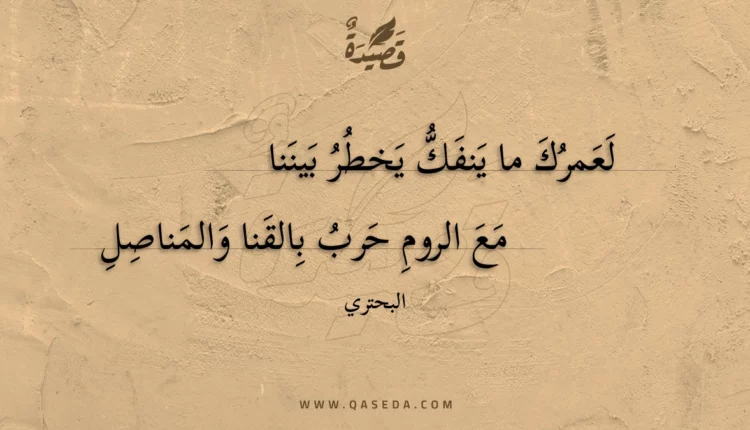 قَصِيْدَةٌ
لَعَمرُكَ ما يَنفَكُّ يَخطُرُ بَينَنا
مَعَ الرومِ حَربُ بِالقَنا وَالمَناصِلِ
البحتري
WWW.QASEDA.COM